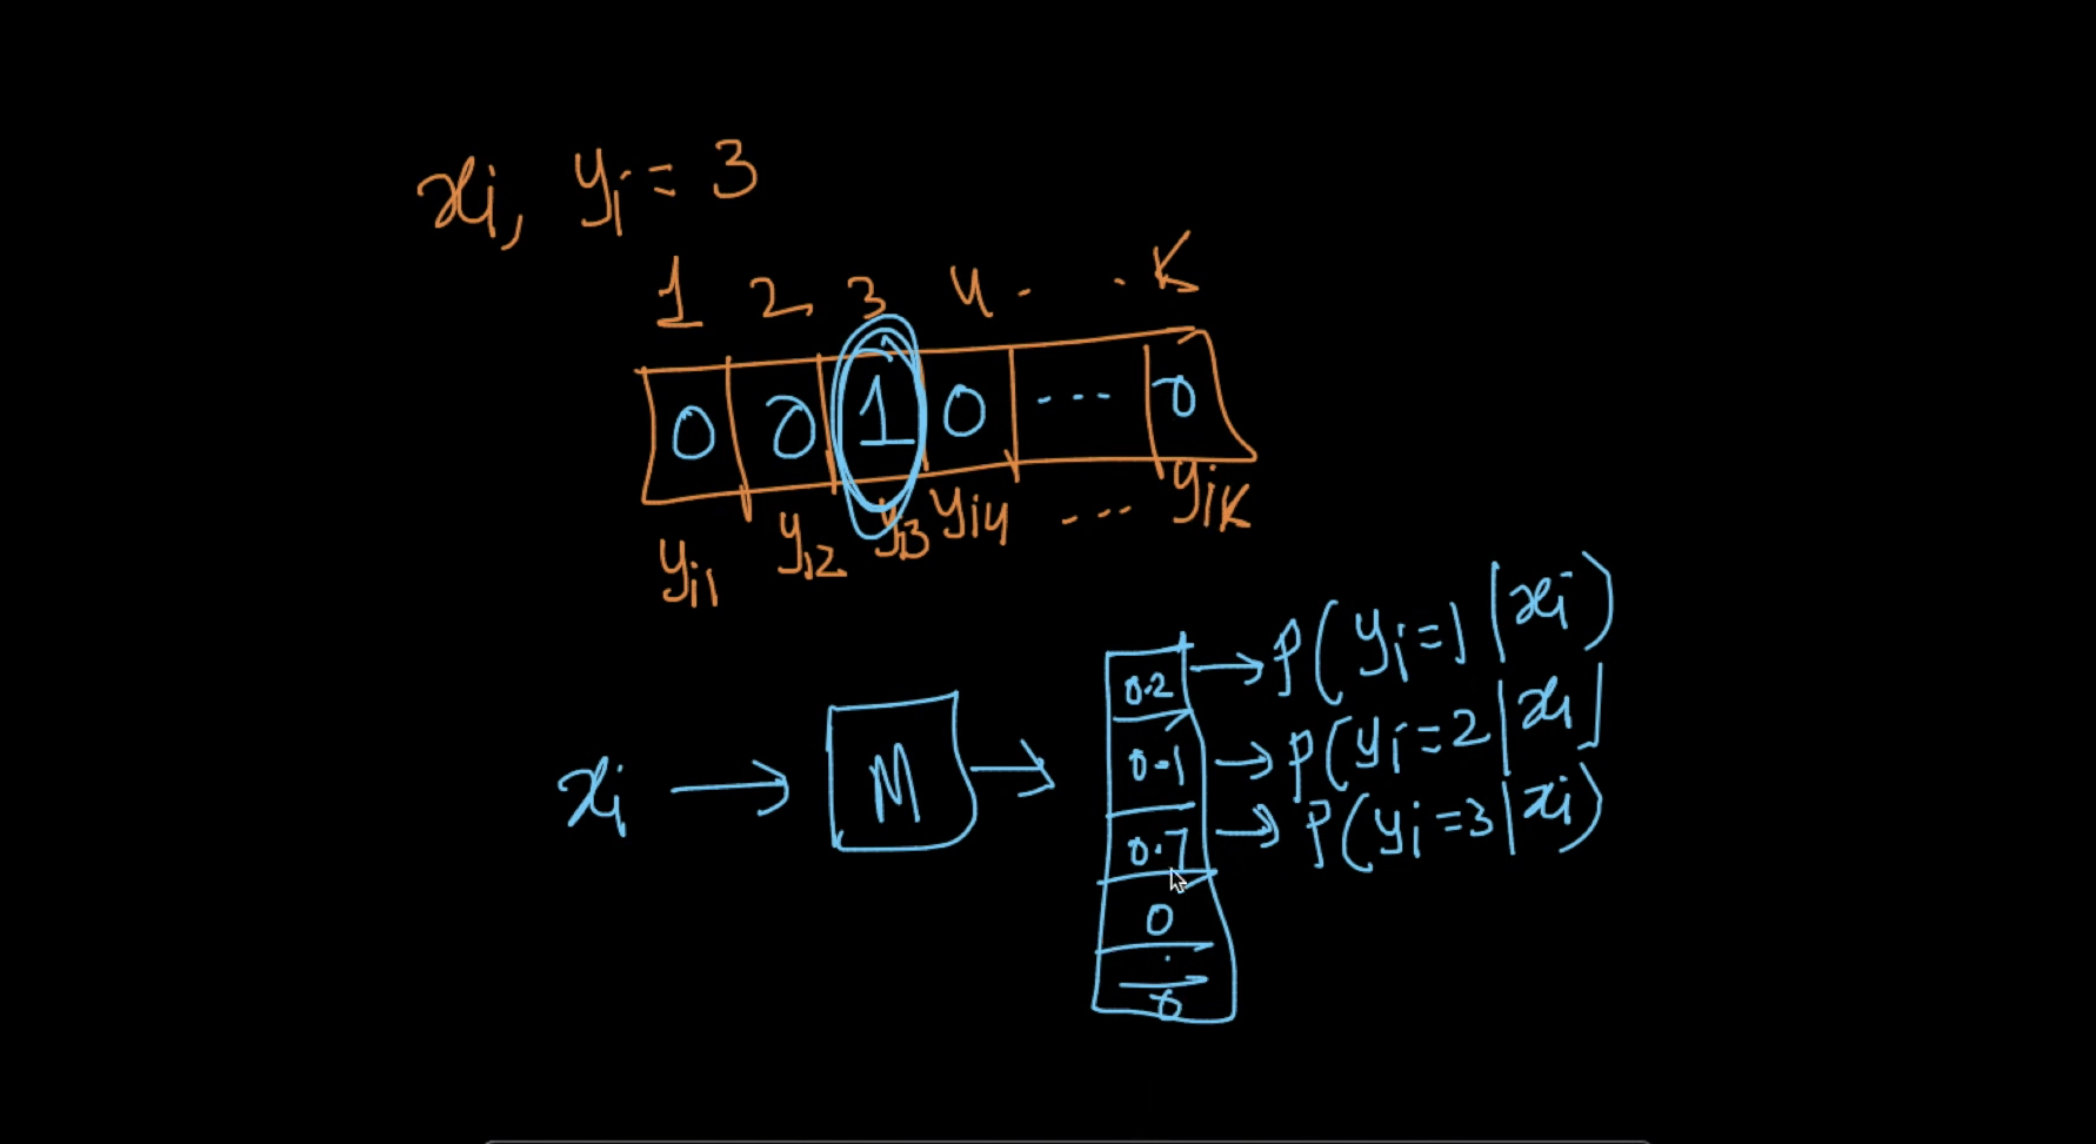 xi, yi = 3
1 2 3 4 . . K
0 0 1 0 --- 0
yi1 yi2 yi3 yi4 --- yiK
0.2 → P(yi=1|xi)
xi → M → 0.1 → P(yi=2|xi)
0.7 → P(yi=3|xi)
0
.
0